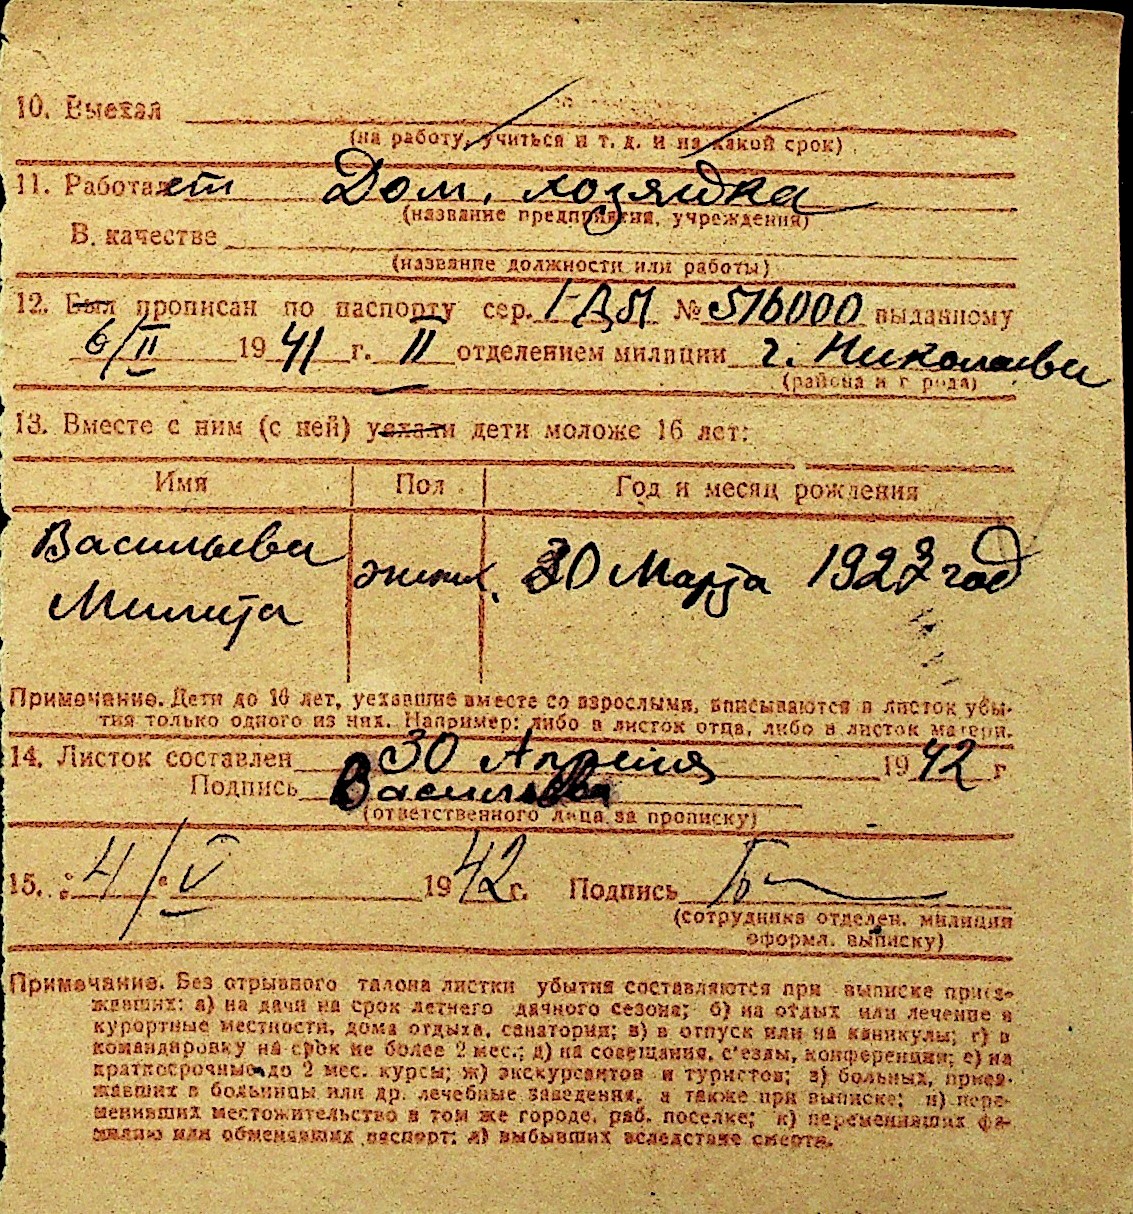 10. Выехал
(на работу, учиться и т. д. и на какой срок)
11. Работает Дом. хозяйка
(название предприятия, учреждения)
В качестве
(название должности или работы)
12. Был прописан по паспорту сер. № 516000 выданному
6/II 1941 г. II отделением милиции г. Николаева
(района и города)
13. Вместе с ним (с ней) уехали дети моложе 16 лет:
Имя Пол Год и месяц рождения
Васильева женск. 30 Марта 1923 год
Милица
Примечание. Дети до 16 лет, уехавшие вместе со взрослыми, вписываются в листок убы-
тия только одного из них. Например: либо в листок отца, либо в листок матери.
14. Листок составлен 30 Апреля 1942 г
Подпись Васильева
(ответственного лица за прописку)
15. 4/V 1942 г. Подпись
(сотрудника отделен. милиции
оформл. выписку)
Примечание. Без отрывного талона листки убытия составляются при выписке приез-
жавших: а) на дачи на срок летнего дачного сезона; б) на отдых или лечение в
курортные местности, дома отдыха, санатории; в) в отпуск или на каникулы; г) в
командировку на срок не более 2 мес.; д) на совещания, с'езды, конференции; е) на
краткосрочные до 2 мес. курсы; ж) экскурсантов и туристов; з) больных, приез-
жавших в больницы или др. лечебные заведения, а также при выписке; и) пере-
менивших местожительство в том же городе, раб. поселке; к) переменивших фа-
милию или обменявших паспорт; л) выбывших вследствие смерти.